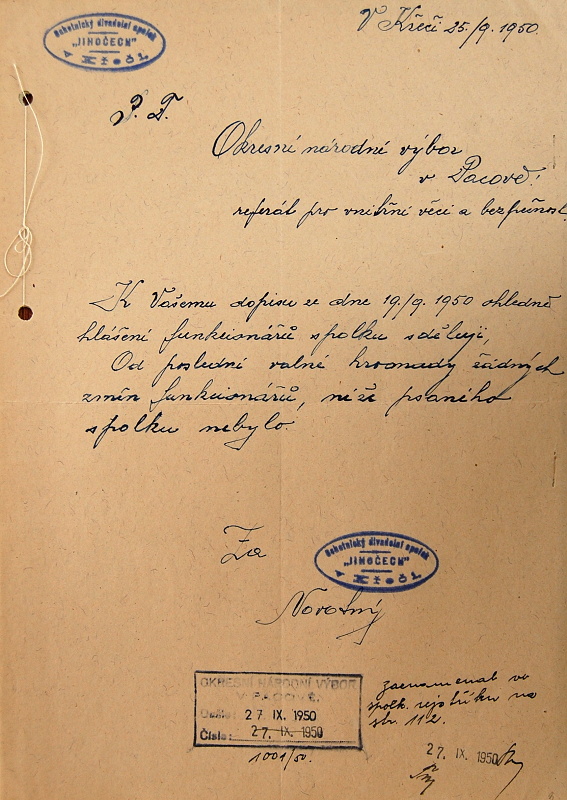 Ochotnický divadelní spolek
"JIHOČECH"
v Křeči.
V Křeči 25./9. 1950.
P. T.
Okresní národné výbor
v Pacově!
referát pro vnitřní věci a bezpečnost.
K Vašemu dopisu ze dne 19./9. 1950 ohledně
hlášení funkcionářů spolku sděluji,
Od poslední valné hromady žádných
změn funkcionářů, níže psaného
spolku nebylo.
Za
Ochotnický divadelní spolek
"JIHOČECH"
v Křeči.
Novotný
OKRESNÍ NÁRODNÍ VÝBOR
V PACOVĚ.
Došlo: 27. IX. 1950
Číslo: 27. IX. 1950
1001/50.
zaznamenat ve
spolk. rejstříku na
str. 112.
27. IX. 1950